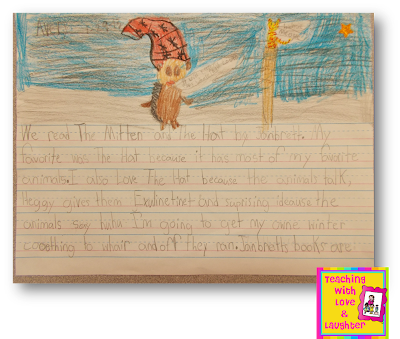 We read The Mitten and The Hat by Janbrett. My
favorite was The Hat because it has most of my favorite
animals. I also Love The Hat because the animals talk,
Heggy gives them and suprising ideause the
animals say haha I'm going to get my owne winter
to whair and off they ran. Janbretts books are
Teaching
With
Love
&
Laughter